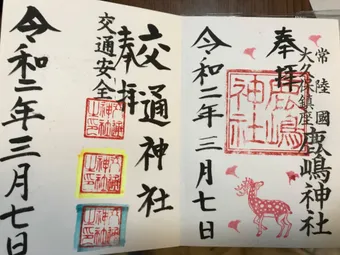 常陸國
大久保鎮座
鹿嶋神社
奉拝
鹿嶋
神社
令和二年三月七日
交通神社
奉拝
交通安全
令和二年三月七日